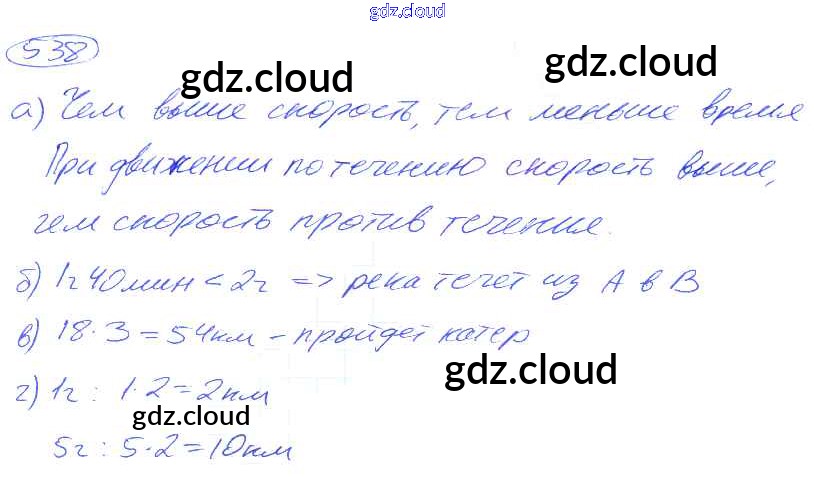 gdz.cloud
538
gdz.cloud
gdz.cloud
а) Чем выше скорость, тем меньше время
При движении по течению скорость выше,
чем скорость против течения.
б) 1ч 40мин < 2ч => река течет из А в В
в) 18·3 = 54км - пройдет катер
gdz.cloud
г) 1ч : 1·2=2км
gdz.cloud
5ч : 5·2=10км